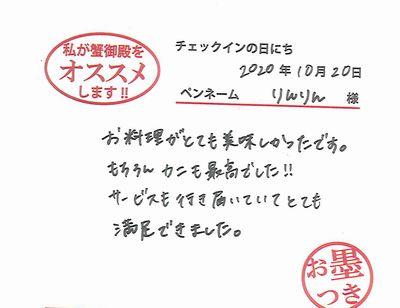 私が蟹御殿を
オススメ
します!!
チェックインの日にち
2020年10月20日
ペンネーム りんりん 様
お料理がとても美味しかったです。
もちろんカニも最高でした!!
サービスも行き届いていてとても
満足できました。
お墨
つき